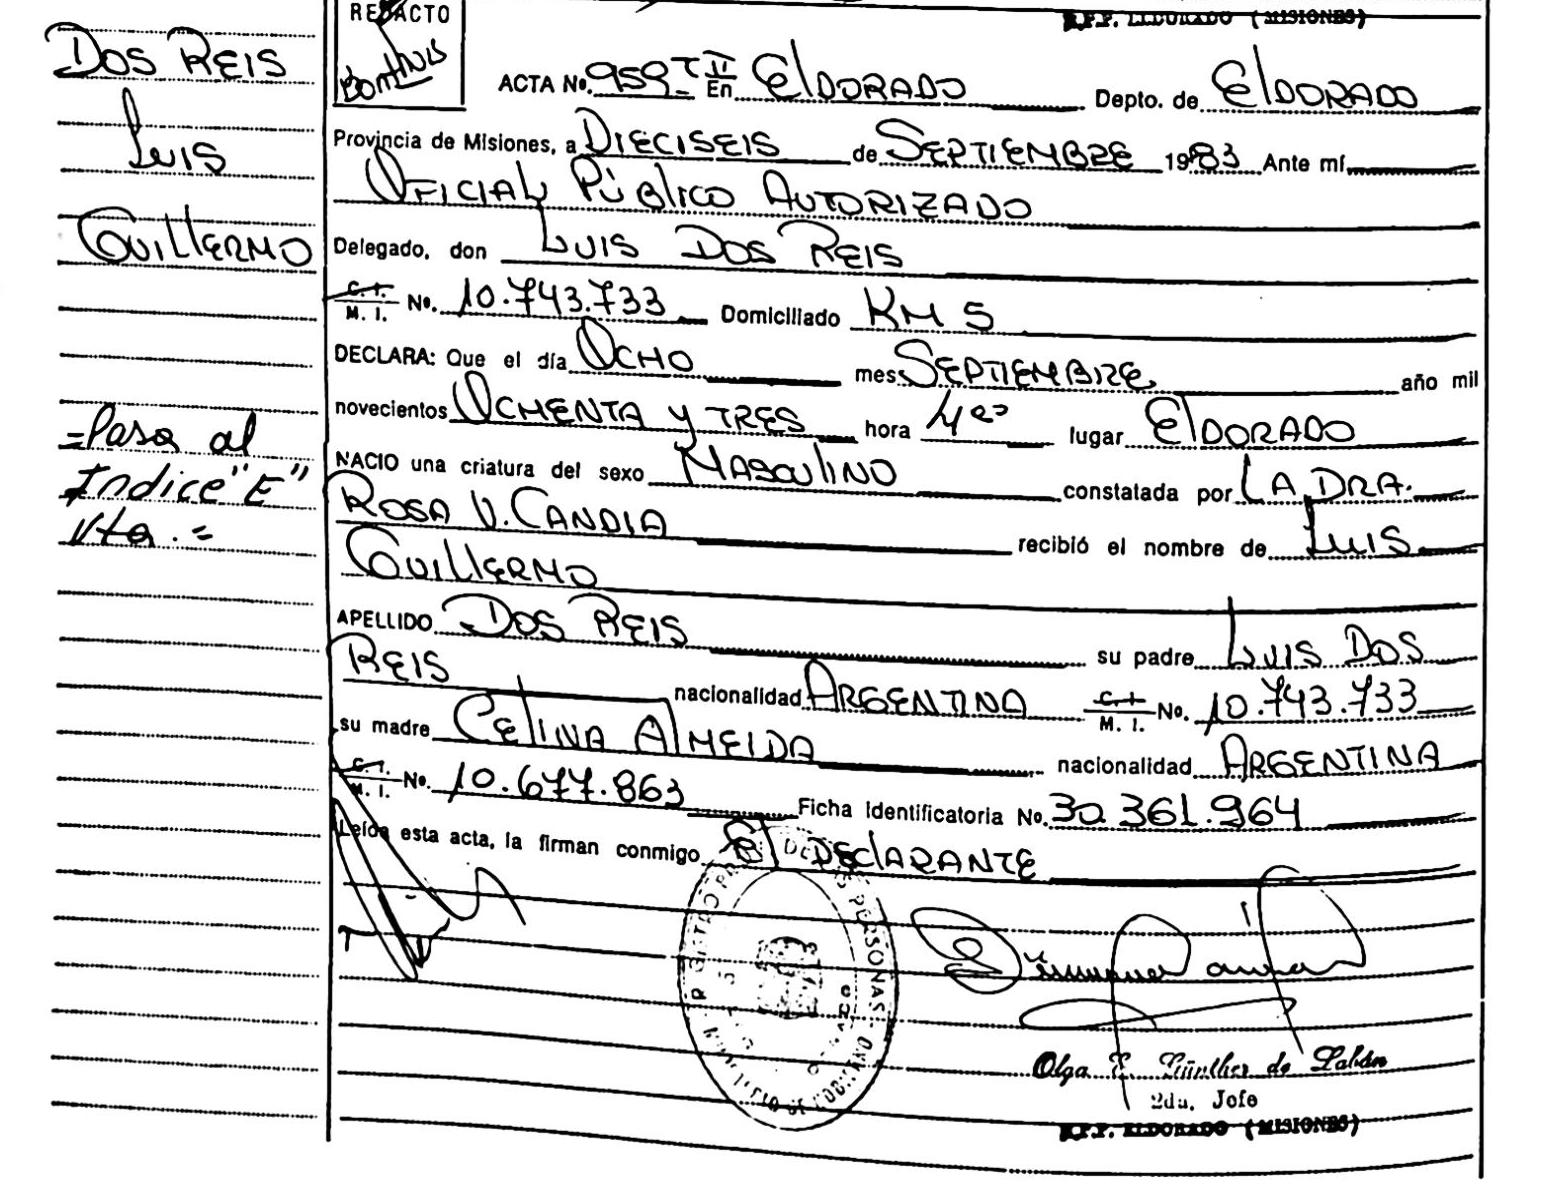 REDACTO
R.P.P. ELDORADO (MISIONES)
DOS REIS
Luis
Guillermo
=Pasa al
Indice "E"
Vta.=
ACTA Nº. 959 T II En ELDORADO Depto. de ELDORADO
Provincia de Misiones, a DIECISEIS de SEPTIEMBRE 1983 Ante mí
OFICIAL PÚBLICO AUTORIZADO
Delegado, don LUIS DOS REIS
C. I. / M. I. Nº. 10.743.733 Domiciliado KM 5
DECLARA: Que el día OCHO mes SEPTIEMBRE año mil
novecientos OCHENTA Y TRES hora 4 lugar ELDORADO
NACIO una criatura del sexo MASCULINO constatada por LA DRA.
ROSA V. CANDIA recibió el nombre de Luis
Guillermo
APELLIDO DOS REIS su padre LUIS DOS
REIS nacionalidad ARGENTINA C. I. / M. I. Nº. 10.743.733
su madre CELINA ALMEIDA nacionalidad ARGENTINA
C. I. / M. I. Nº. 10.677.863 Ficha Identificatoria Nº. 30.361.964
Leída esta acta, la firman conmigo El DECLARANTE
Olga E. Günther de Labán
2da. Jefe
R.P.P. ELDORADO (MISIONES)